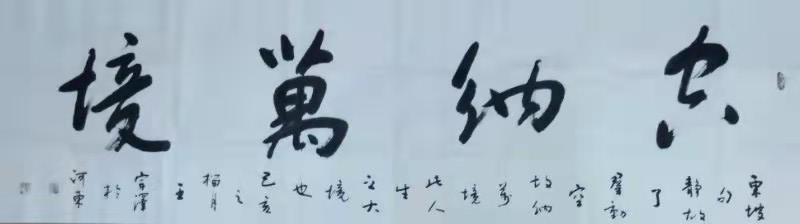 空纳萬境
東坡句静故了群動空故纳萬境此人生之大境也己亥之榴月王於河東